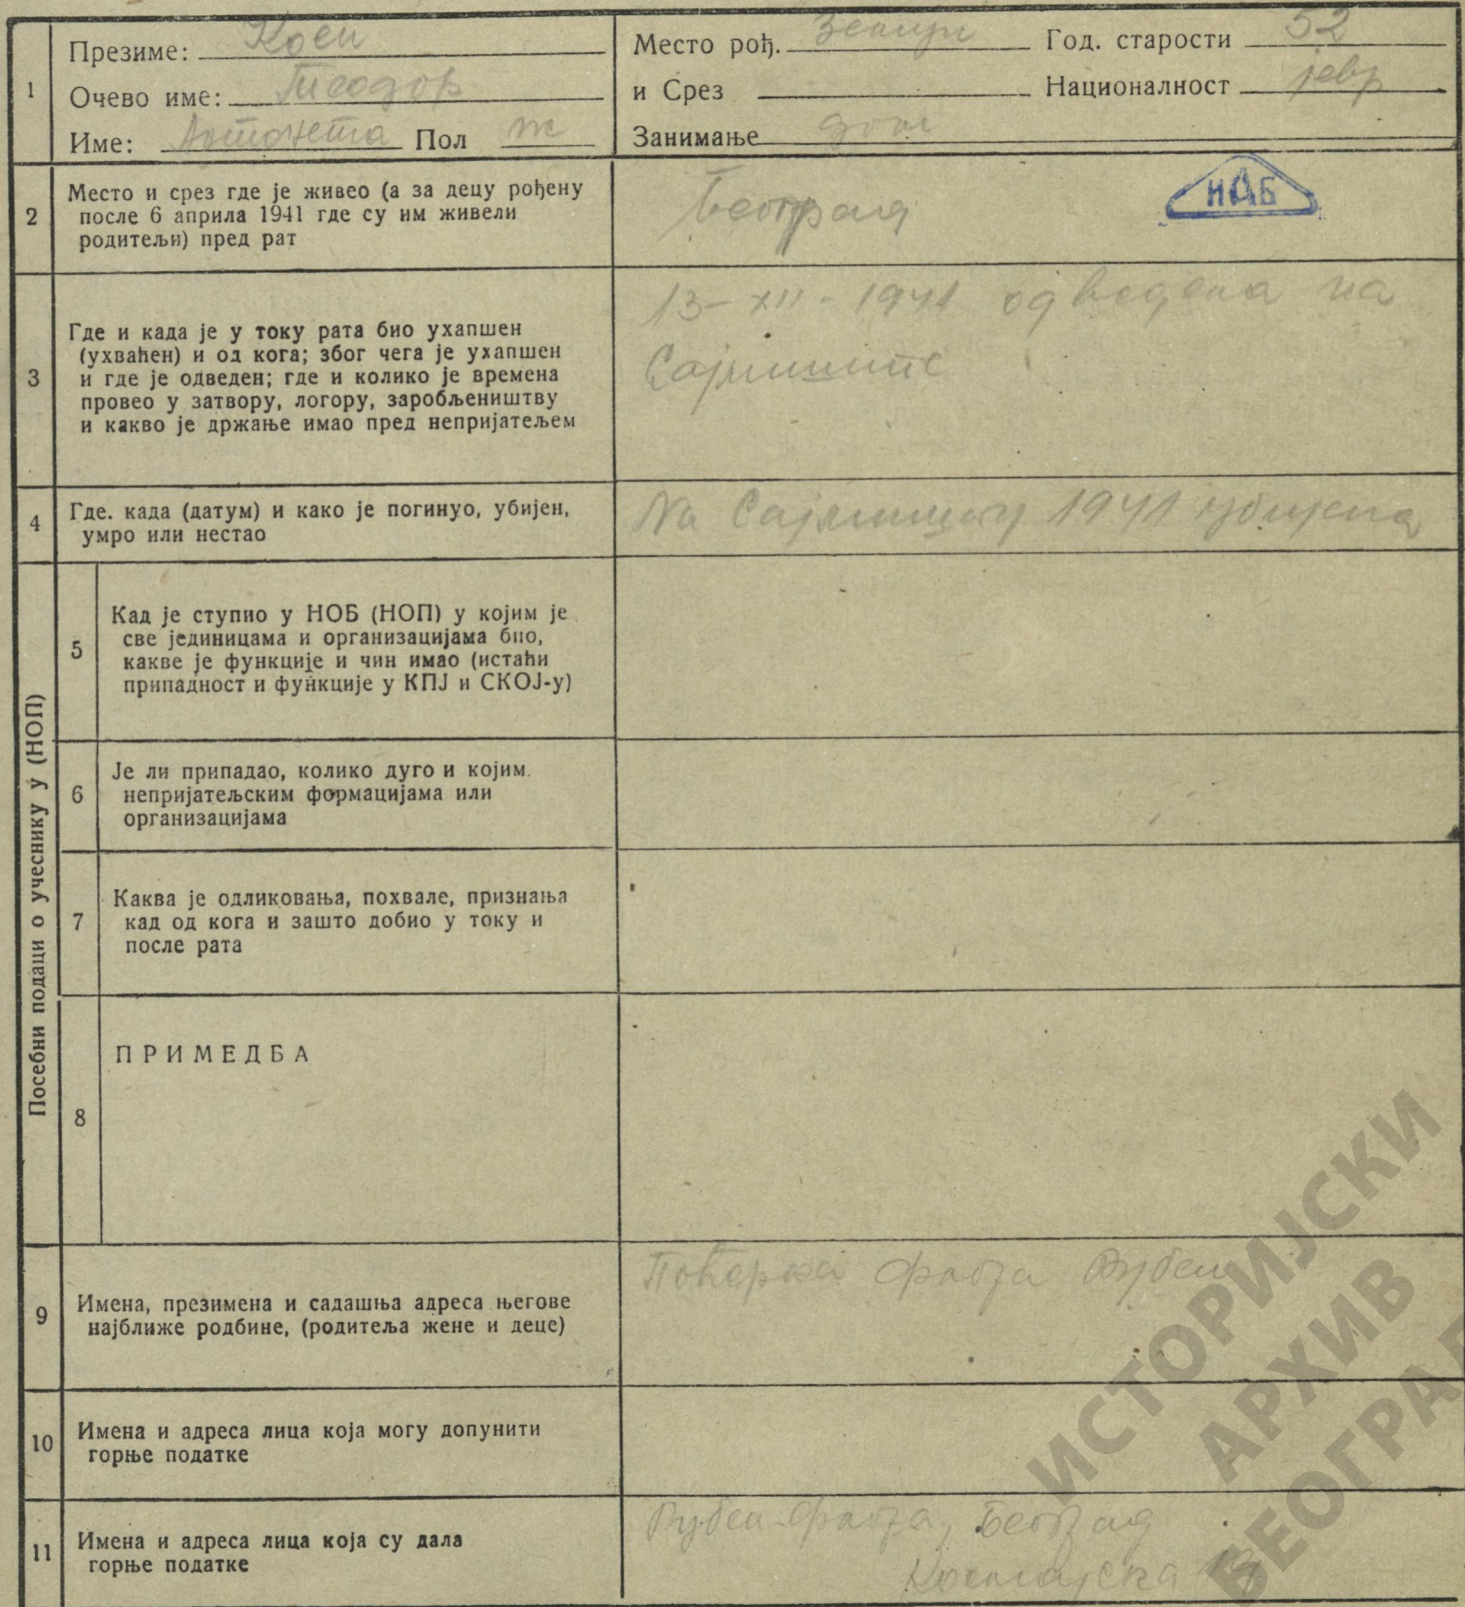 1
Презиме: Коен
Очево име: Теодор
Име: Антонета Пол ж
Место рођ. Земун Год. старости 52
и Срез Националност јевр
Занимање дом
2
Место и срез где је живео (а за децу рођену
после 6 априла 1941 где су им живели
родитељи) пред рат
Београд
НАБ
3
Где и када је у току рата био ухапшен
(ухваћен) и од кога; због чега је ухапшен
и где је одведен; где и колико је времена
провео у затвору, логору, заробљеништву
и какво је држање имао пред непријатељем
13-XII-1941 одведена на
Сајмиште
4
Где. када (датум) и како је погинуо, убијен,
умро или нестао
На Сајмишту 1941 убијена
Посебни подаци о учеснику у (НОП)
5
Кад је ступио у НОБ (НОП) у којим је
све јединицама и организацијама био,
какве је функције и чин имао (истаћи
припадност и функције у КПЈ и СКОЈ-у)
6
Је ли припадао, колико дуго и којим
непријатељским формацијама или
организацијама
7
Каква је одликовања, похвале, признања
кад од кога и зашто добио у току и
после рата
8
ПРИМЕДБА
9
Имена, презимена и садашња адреса његове
најближе родбине, (родитеља жене и деце)
Поћерка Рубен
10
Имена и адреса лица која могу допунити
горње податке
11
Имена и адреса лица која су дала
горње податке
Рубен Београд
Космајска
ИСТОРИЈСКИ
АРХИВ
БЕОГРАД